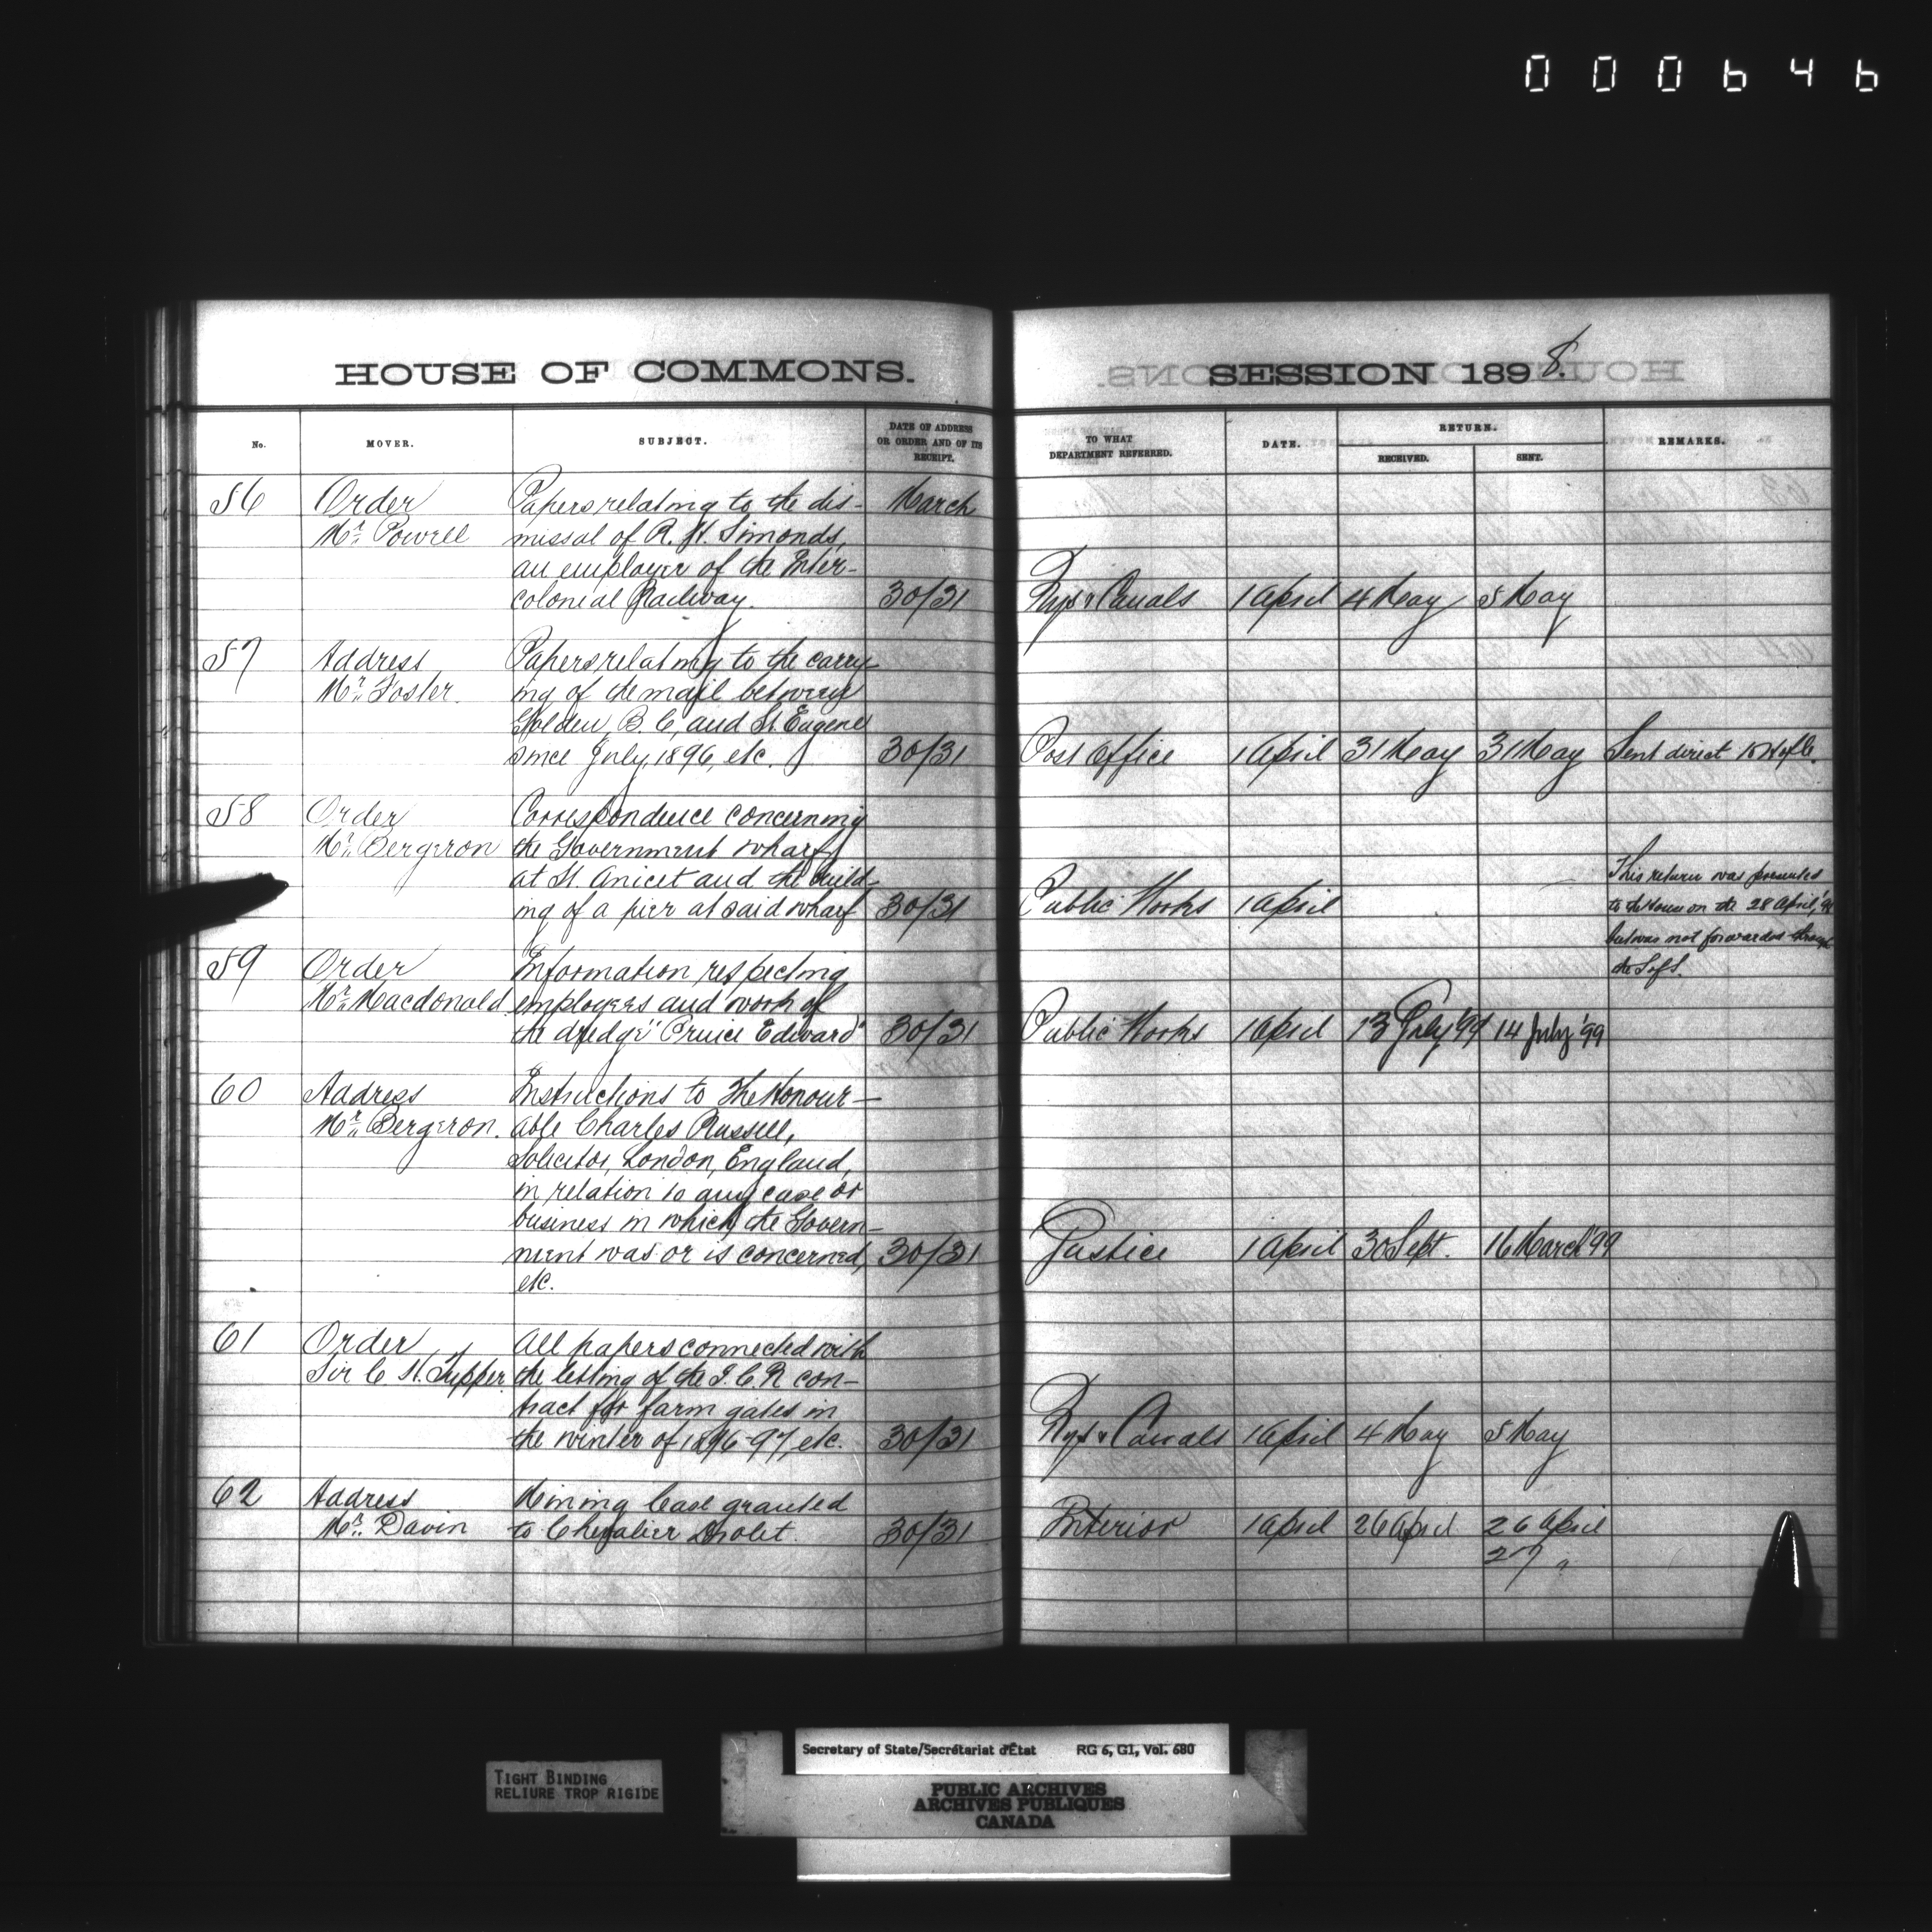 000646
HOUSE OF COMMONS.
No. MOVER. SUBJECT. DATE OF ADDRESS OR ORDER AND OF ITS RECEIPT.
56 Order Papers relating to the dis- March
Mr. Powell missal of R. H. Simonds,
an employee of the Inter-
colonial Railway. 30/31
57 Address Papers relating to the carry-
Mr. Foster. ing of the mail between
Golden, B.C, and St. Eugene
since July, 1896, etc. 30/31
58 Order Correspondence concerning
Mr. Bergeron the Government wharf
at St. Anicet and the build-
ing of a pier at said wharf 30/31
59 Order Information respecting
Mr. Macdonald employees and work of
the dredge "Prince Edward" 30/31
60 Address Instructions to The Honour-
Mr. Bergeron. able Charles Russell,
Solicitor, London, England,
in relation to any case or
business in which the Govern-
ment was or is concerned, 30/31
etc.
61 Order All papers connected with
Sir C. H. Tupper the letting of the I.C.R con-
tract for farm gates in
the winter of 1896-97, etc. 30/31
62 Address Mining lease granted
Mr. Davin to Chevalier Drolet. 30/31
SESSION 1898.
TO WHAT DEPARTMENT REFERRED. DATE. RETURN. RECEIVED. SENT. REMARKS.
Rys & Canals 1 April 4 May 5 May
Post Office 1 April 31 May 31 May Sent direct to H of C.
This return was presented
Public Works 1 April to the House on the 28 April,
but was not forwarded through
the S of S.
Public Works 1 April 13 July '99 14 July '99
Justice 1 April 30 Sept. 16 March '99
Rys & Canals 1 April 4 May 5 May
Interior 1 April 26 April 26 April
27 "
TIGHT BINDING
RELIURE TROP RIGIDE
Secretary of State/Secrétariat d'État RG 6, G1, Vol. 680
PUBLIC ARCHIVES
ARCHIVES PUBLIQUES
CANADA